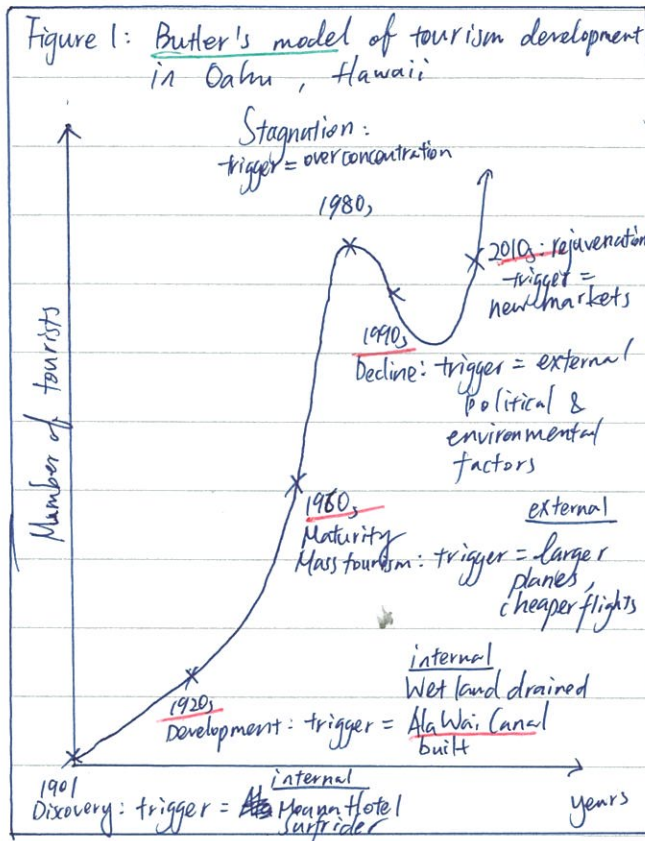 Figure 1: Butler's model of tourism development
in Oahu, Hawaii
Stagnation:
trigger = overconcentration
1980s
2010s: rejuvenation
trigger =
new markets
1990s
Decline: trigger = external
political &
environmental
factors
Number of tourists
1960s
Maturity
Mass tourism: trigger = larger
planes,
cheaper flights
external
internal
Wetland drained
1920s
Development: trigger = Ala Wai Canal
built
1901
internal
Discovery: trigger = Moana Hotel
Surfrider
years